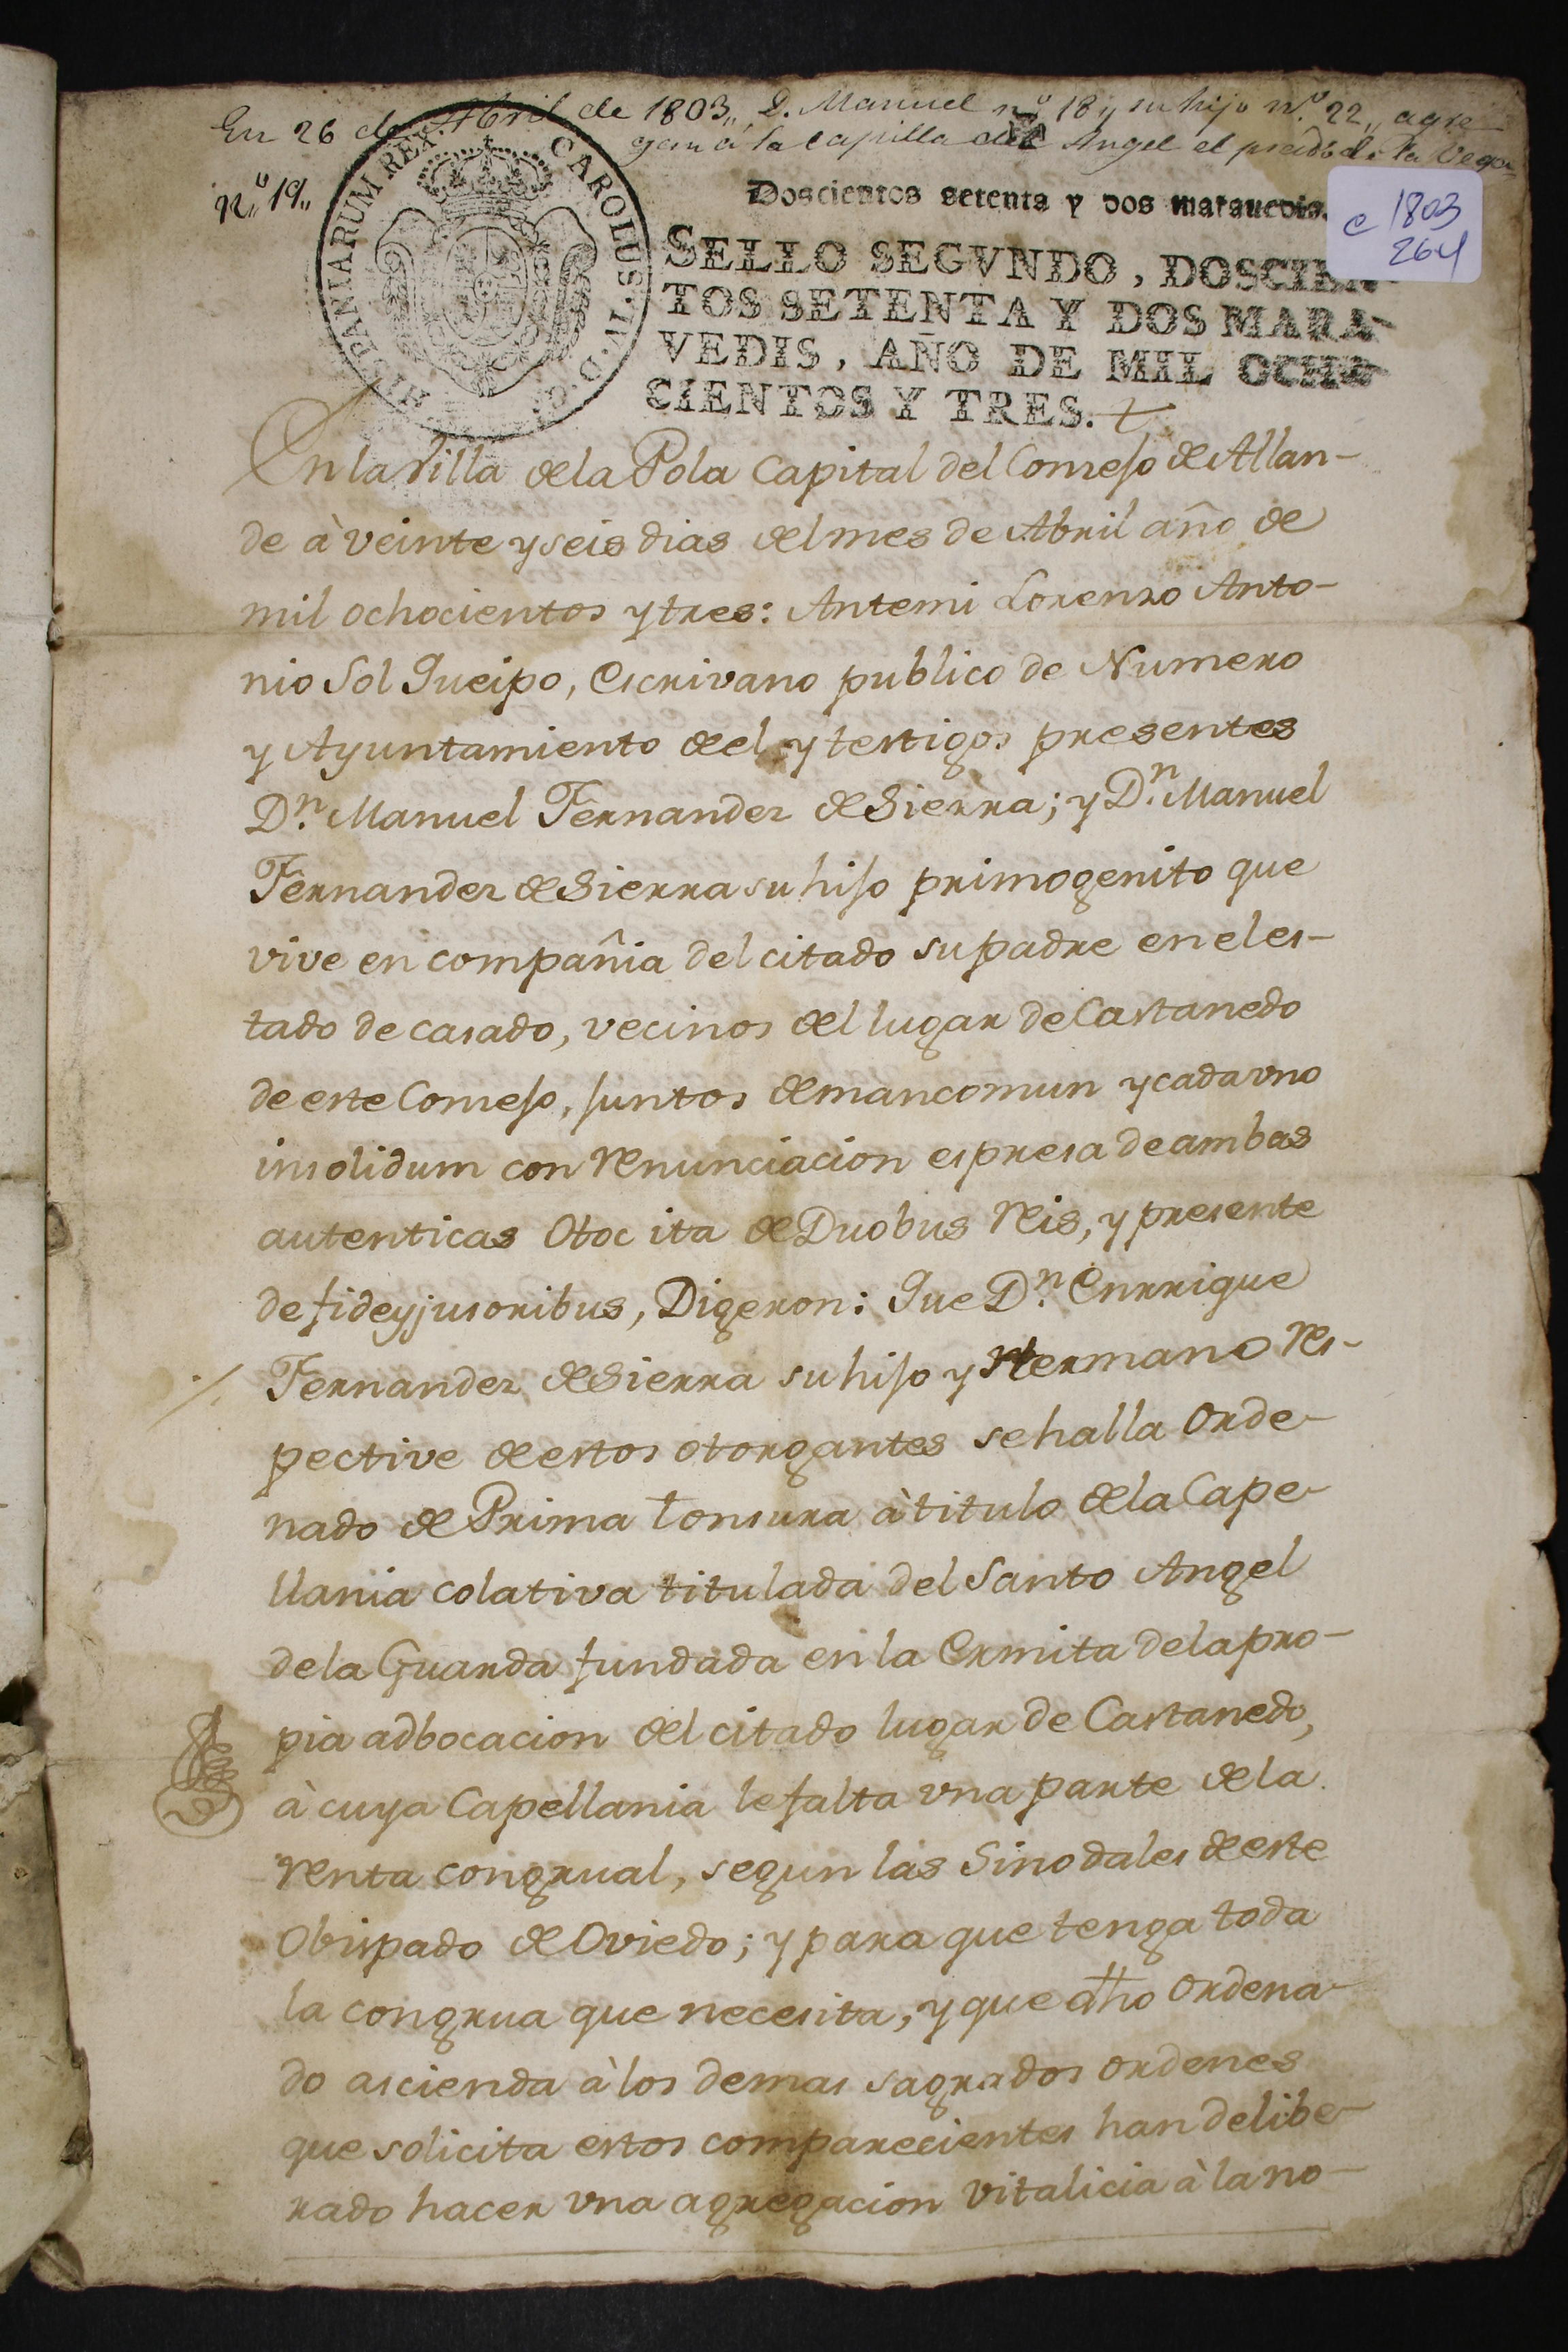 En 26 de Abril de 1803,, D. Manuel nº 18 y su hijo nº. 22,, agre
gan á la capilla del Angel el prado de la Vega
Nº 19,,
HISPANIARUM REX CAROLUS IV D. G.
Doscientos setenta y dos marauedis.
e 1803
264
SELLO SEGVNDO, DOSCIEN
TOS SETENTA Y DOS MARA
VEDIS, AÑO DE MIL OCHO
CIENTOS Y TRES.
En la Villa de la Pola Capital del Consejo de Allan-
de à veinte y seis dias del mes de Abril año de
mil ochocientos y tres: Antemi Lorenzo Anto-
nio Sol Queipo, Escrivano publico de Numero
y Ayuntamiento de el y testigos presentes
Dn. Manuel Fernandez de Sierra; y Dn. Manuel
Fernandez de Sierra su hijo primogenito que
vive en compañia del citado su padre en el es-
tado de casado, vecinos del lugar de Castanedo
de este Consejo, juntos de mancomun y cada vno
insolidum con renunciacion espresa de ambas
autenticas Otoc ita de Duobus reis, y presente
de fideyjusoribus, Digeron: Que Dn. Enrrique
Fernandez de Sierra su hijo y Hermano res-
pective de estos otorgantes se halla Orde-
nado de Prima tonsura à titulo de la Cape-
llania colativa titulada del Santo Angel
de la Guarda fundada en la Ermita de la pro-
pia adbocacion del citado lugar de Castanedo,
à cuya Capellania le falta vna parte de la
renta congrual, segun las Sinodales de este
Obispado de Oviedo; y para que tenga toda
la congrua que necesita, y que dho Ordena-
do ascienda à los demas sagrados ordenes
que solicita estos comparecientes han delibe-
rado hacer vna agregacion vitalicia à la no-